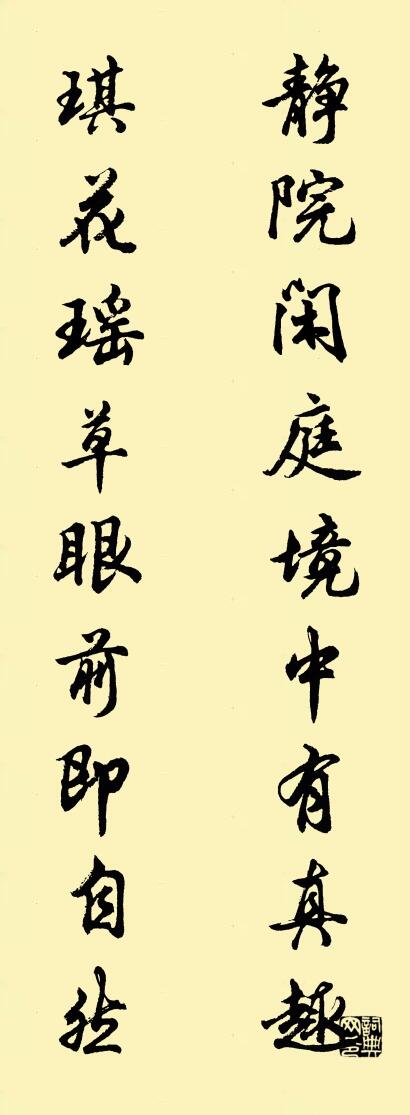 静院闲庭境中有真趣
琪花瑶草眼前即自然